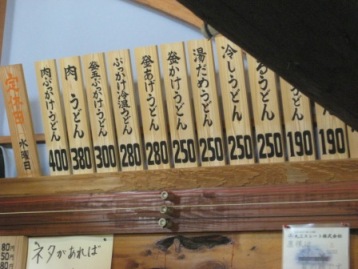 定休日
水曜日
肉ぶっかけうどん
400
肉うどん
380
釜玉ぶっかけうどん
300
ぶっかけ冷温うどん
280
釜あげうどん
280
釜かけうどん
250
湯だめうどん
250
冷しうどん
250
るうどん
250
うどん
190
190
80円
50円
80
ネタがあれば